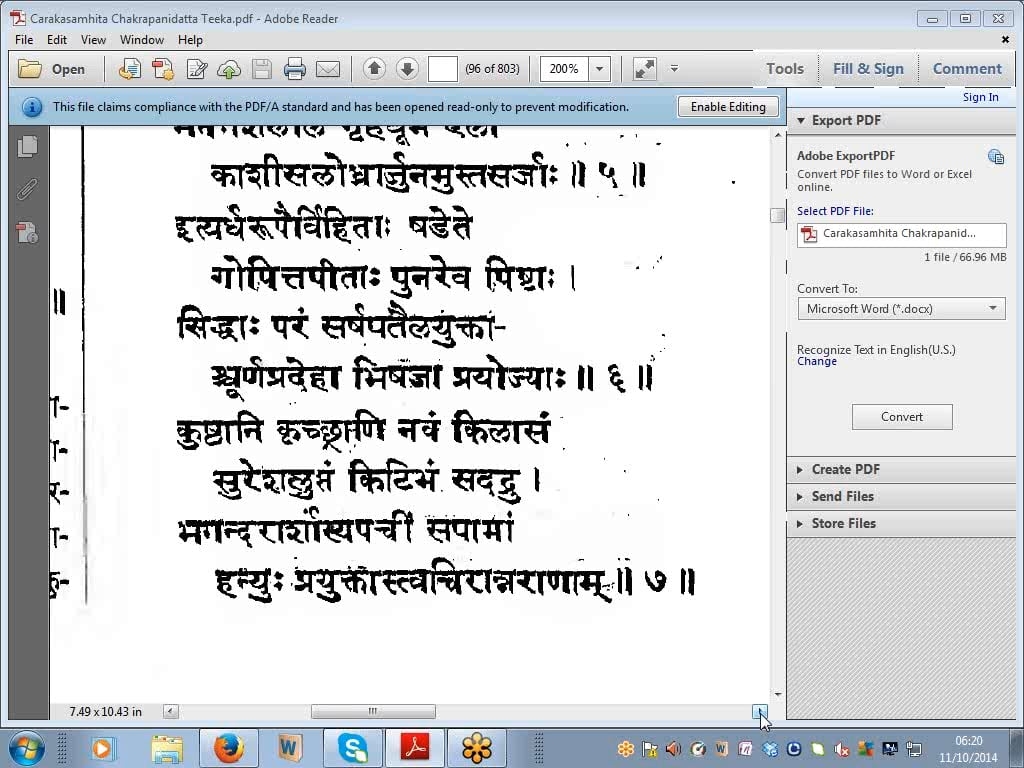 Carakasamhita Chakrapanidatta Teeka.pdf - Adobe Reader
File Edit View Window Help
Open (96 of 803) 200% Tools Fill & Sign Comment
This file claims compliance with the PDF/A standard and has been opened read-only to prevent modification. Enable Editing
Sign In
Export PDF
Adobe ExportPDF
Convert PDF files to Word or Excel
online.
Select PDF File:
Carakasamhita Chakrapanid...
1 file / 66.96 MB
Convert To:
Microsoft Word (*.docx)
Recognize Text in English(U.S.)
Change
Convert
Create PDF
Send Files
Store Files
काशीसलोध्रार्जुनमुस्तसर्जाः ॥ ५ ॥
इत्यर्धरूपैर्विहिताः षडेते
गोपित्तपीताः पुनरेव पिष्टाः ।
सिद्धाः परं सर्षपतैलयुक्ता-
श्चूर्णप्रदेहा भिषजा प्रयोज्याः ॥ ६ ॥
कुष्ठानि कृच्छ्राणि नवं किलासं
सुरेशलुप्तं किटिभं सदद्रु ।
भगन्दरार्शांस्यपचीं सपामां
हन्युः प्रयुक्तास्त्वचिरान्नराणाम् ॥ ७ ॥
7.49 x 10.43 in
06:20
11/10/2014